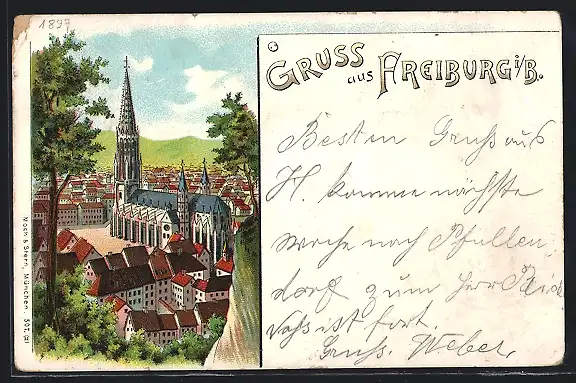 1897
GRUSS aus FREIBURG i/B.
Besten Gruß aus
H. komme nächste
woche nach Pfullen,
dorf zum Herr
ist fort.
Gruß. Weber,
Moch & Stern, München.